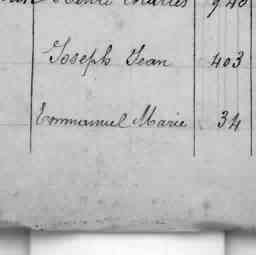 Henri Charles 940
Joseph Jean 403
Emmanuel Marie 34